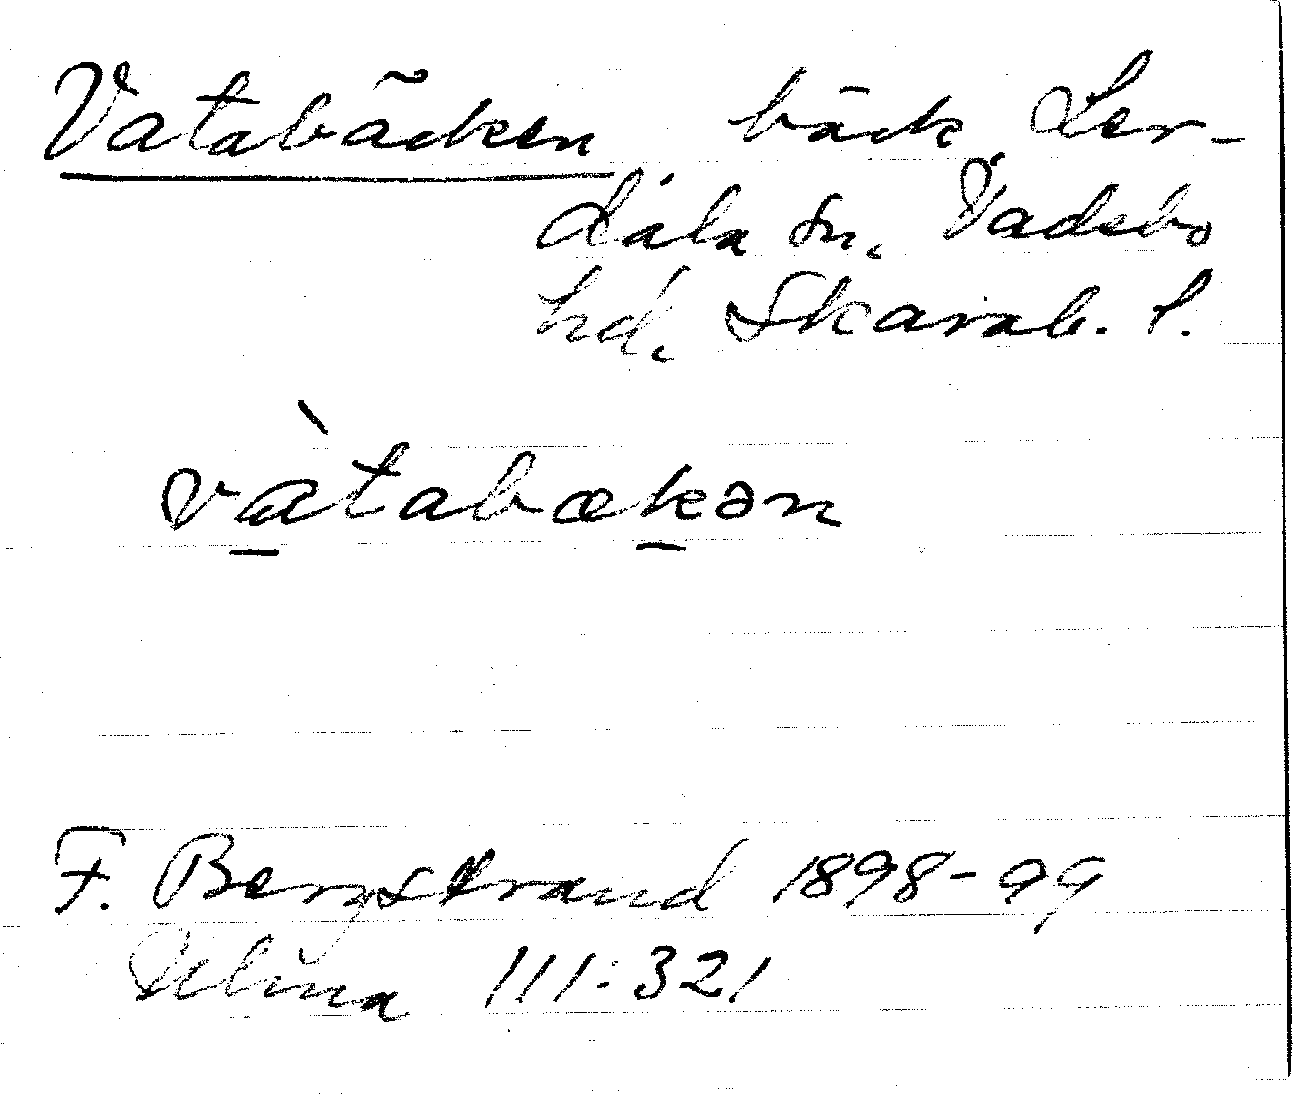 Vatabäcken bäck Ler-
dala sn. Vadsbo
hd. Skarab. l.
vàtabækən
F. Bergstrand 1898-99
111:321